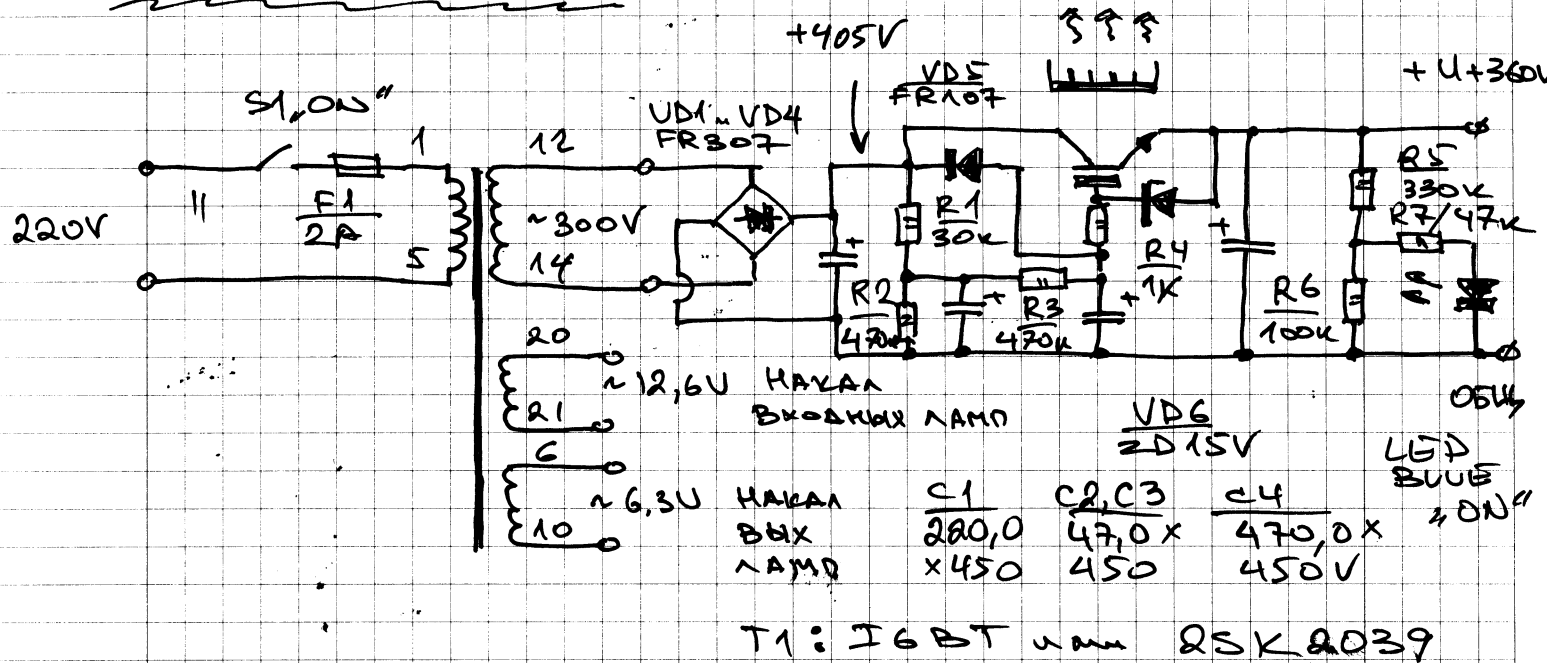 +405V
+U+360V
S1„ON“
VD5
FR107
VD1...VD4
FR307
220V
F1
2A
1
5
12
~300V
14
R1
30к
R2
470к
R3
470к
R4
1К
R5
330к
R7/47к
R6
100к
20
~12,6V НАКАЛ
ВХОДНЫХ ЛАМП
21
6
~6,3V НАКАЛ
ВЫХ
ЛАМП
10
VD6
ZD15V
ОБЩ
LED
BLUE
„ON“
C1
220,0
x450
C2,C3
47,0x
450
C4
470,0x
450V
T1: IGBT или 2SK2039